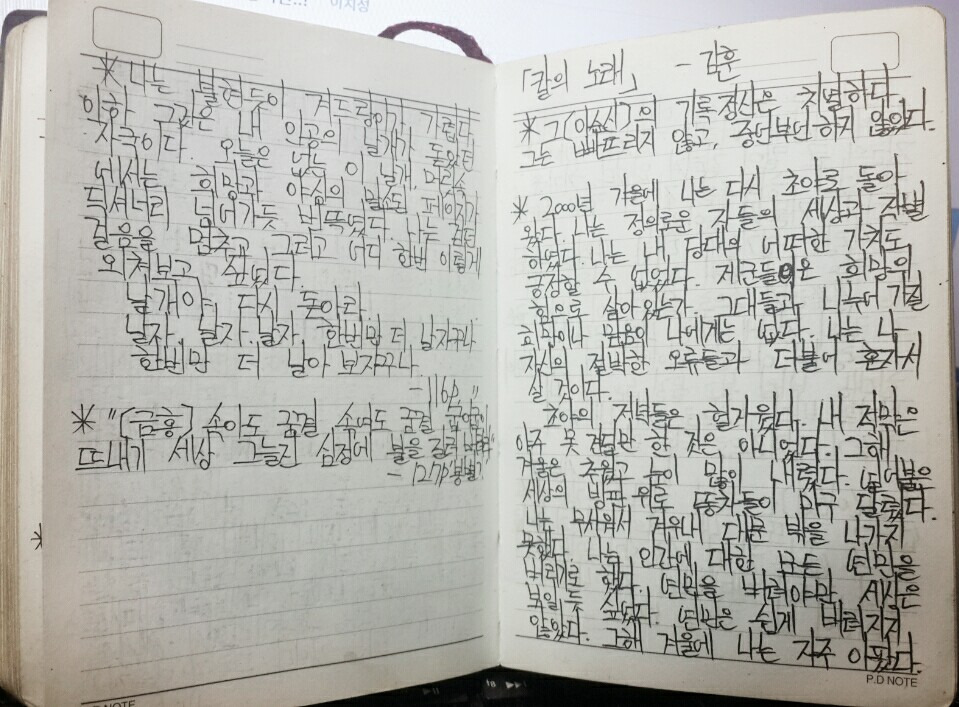 이지성
* 나는 불현듯이 겨드랑이가 가렵다.
아하 그것은 내 인공의 날개가 돋았던
자국이다. 오늘은 없는 이 날개, 머릿속
에서는 희망과 야심의 말소된 페이지가
딕셔너리 넘어가듯 번뜩였다. 나는 걷던
걸음을 멈추고 그리고 어디 한번 이렇게
외쳐보고 싶었다.
날개야, 다시 돋아라.
날자. 날자. 날자. 한번만 더 날자꾸나
한번만 더 날아 보자꾸나.
- 116p
* "(금홍) 속아도 꿈결 속여도 꿈결 굽이굽이
뜨내기 세상 그늘진 심정에 불을 질러 버려라"
- 127p '봉별기'
「칼의 노래」 - 김훈
* 그(이순신)의 기록정신은 치열하다.
그는 빠뜨리지 않고, 중언부언하지 않았다.
* 2000년 가을에 나는 다시 초야로 돌아
왔다. 나는 정의로운 자들의 세상과 작별
하였다. 나는 내 당대의 어떠한 가치도
긍정할 수 없었다. 제군들은 희망의
힘으로 살아있는가. 그대들과 나누어 가질
희망이나 믿음이 나에게는 없다. 나는 나
자신의 절박한 오류들과 더불어 혼자서
살 것이다.
초야의 저녁들은 헐거웠다. 내 적막은
아주 못 견딜만 한 것은 아니었다. 그해
겨울은 추웠고 눈이 많이 내렸다. 얼어붙은
세상의 빙판 위로 똥차들이 마구 달렸다.
나는 무서워서 겨우내 대문 밖을 나가지
못했다. 나는 인간에 대한 모든 연민을
버리기로 했다. 연민을 버려야만 세상은
보일 듯 싶었다. 연민은 쉽게 버려지지
않았다. 그해 겨울에 나는 자주 아팠다.
P.D NOTE
P.D NOTE